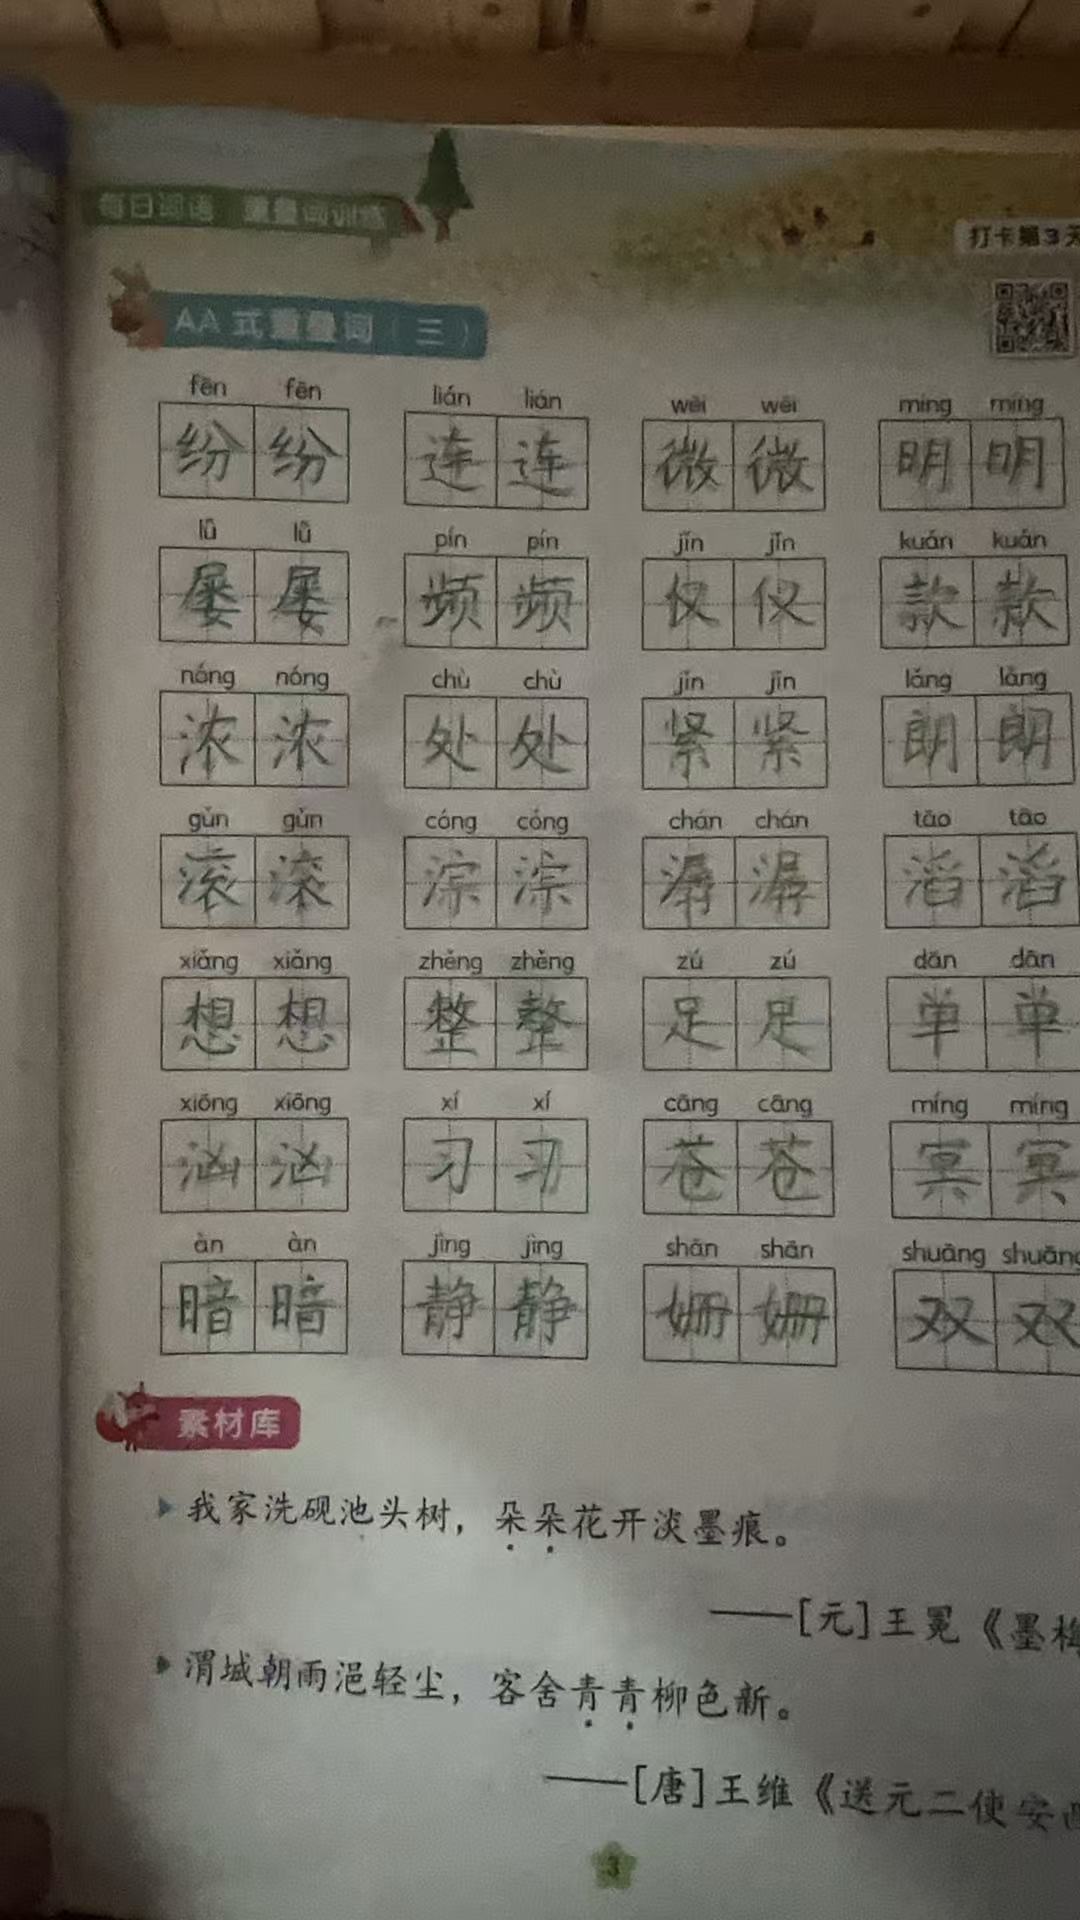 每日词语 重叠词训练
打卡第3天
AA式重叠词（三）
fēn fēn lián lián wēi wēi míng míng
纷纷 连连 微微 明明
lǚ lǚ pín pín jǐn jǐn kuǎn kuǎn
屡屡 频频 仅仅 款款
nóng nóng chù chù jǐn jǐn lǎng lǎng
浓浓 处处 紧紧 朗朗
gǔn gǔn cóng cóng chán chán tāo tāo
滚滚 淙淙 潺潺 滔滔
xiǎng xiǎng zhěng zhěng zú zú dān dān
想想 整整 足足 单单
xiōng xiōng xí xí cāng cāng míng míng
汹汹 习习 苍苍 冥冥
àn àn jìng jìng shān shān shuāng shuāng
暗暗 静静 姗姗 双双
素材库
我家洗砚池头树，朵朵花开淡墨痕。
——[元]王冕《墨梅
渭城朝雨浥轻尘，客舍青青柳色新。
——[唐]王维《送元二使安西
3